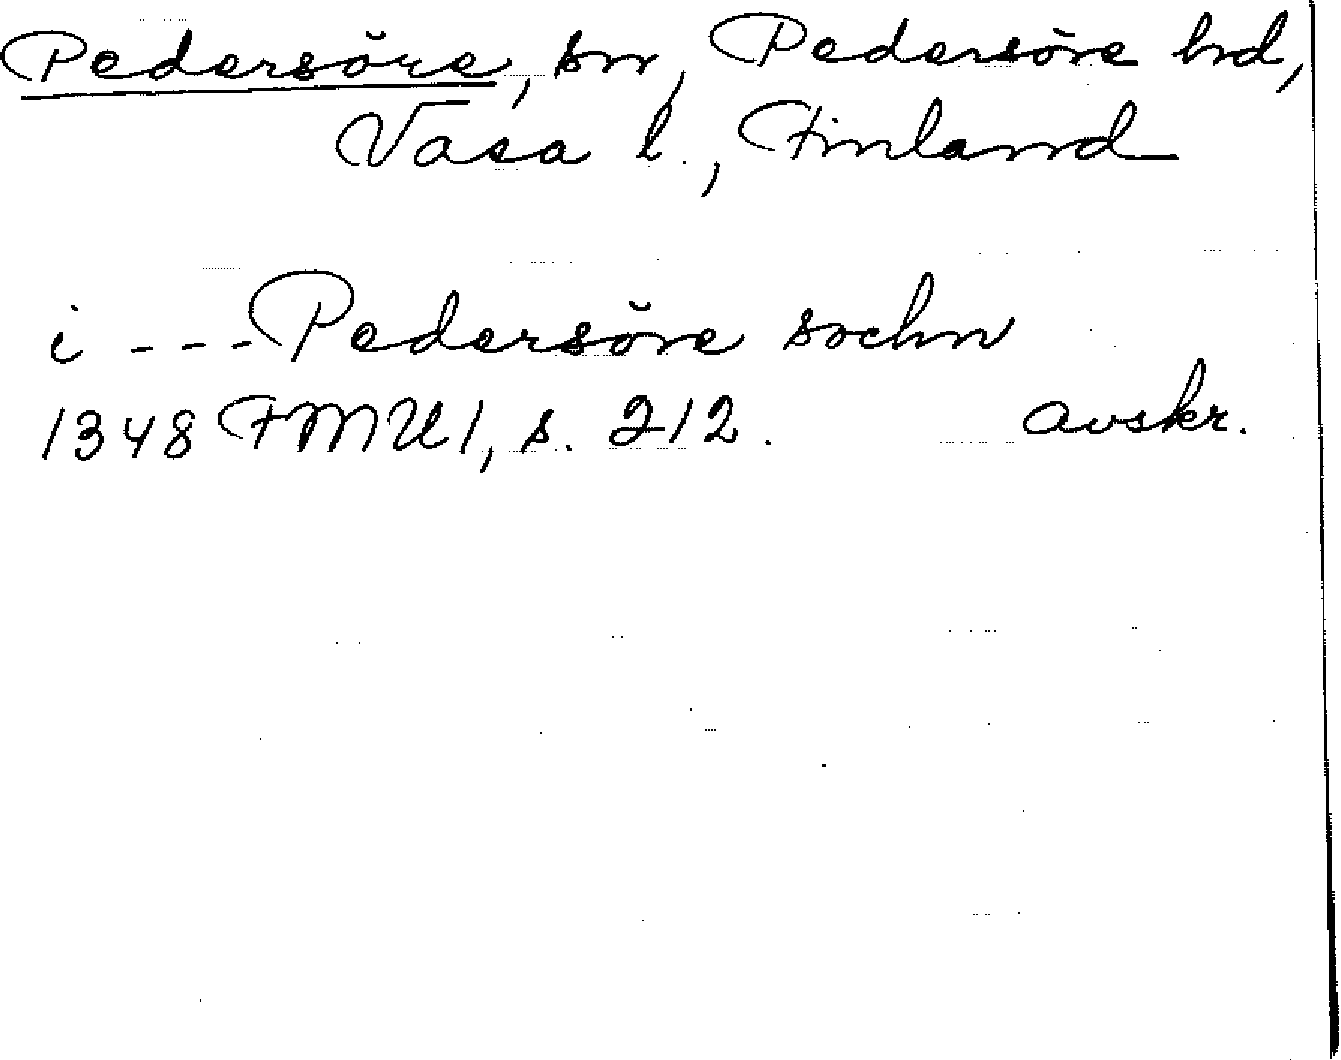 Pedersöre, sn, Pedersöre hd,
Vasa l., Finland
i --- Pedersöre sochn
1348 FMU 1, s. 212. avskr.